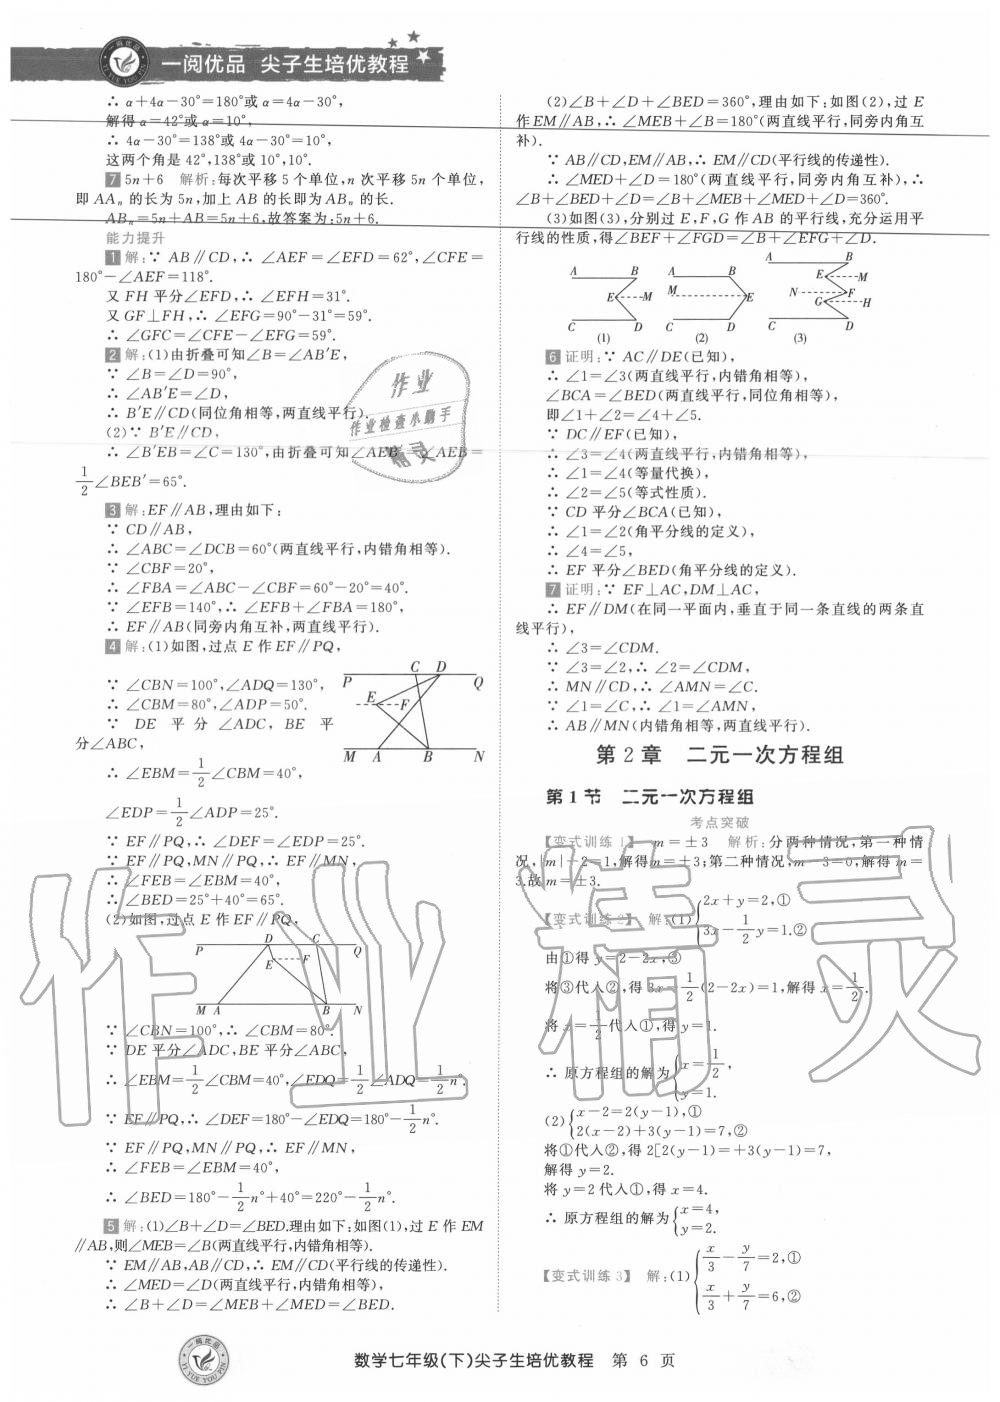 一阅优品 尖子生培优教程
∴ α+4α-30°=180°或α=4α-30°,
解得α=42°或α=10°,
∴ 4α-30°=138°或4α-30°=10°,
这两个角是 42°,138°或 10°,10°.
7 5n+6 解析:每次平移 5 个单位,n 次平移 5n 个单位,
即 AAₙ 的长为 5n,加上 AB 的长即为 ABₙ 的长.
ABₙ=5n+AB=5n+6,故答案为:5n+6.
能力提升
1 解:∵ AB∥CD,∴ ∠AEF=∠EFD=62°,∠CFE=
180°-∠AEF=118°.
又 FH 平分∠EFD,∴ ∠EFH=31°.
又 GF⊥FH,∴ ∠EFG=90°-31°=59°.
∴ ∠GFC=∠CFE-∠EFG=59°.
2 解:(1)由折叠可知∠B=∠AB′E,
∵ ∠B=∠D=90°,
∴ ∠AB′E=∠D,
∴ B′E∥CD(同位角相等,两直线平行).
(2)∵ B′E∥CD,
∴ ∠B′EB=∠C=130°,由折叠可知∠AEB′=∠AEB=
1/2∠BEB′=65°.
3 解:EF∥AB,理由如下:
∵ CD∥AB,
∴ ∠ABC=∠DCB=60°(两直线平行,内错角相等).
∵ ∠CBF=20°,
∴ ∠FBA=∠ABC-∠CBF=60°-20°=40°.
∵ ∠EFB=140°,∴ ∠EFB+∠FBA=180°,
∴ EF∥AB(同旁内角互补,两直线平行).
4 解:(1)如图,过点 E 作 EF∥PQ,
∵ ∠CBN=100°,∠ADQ=130°,
∴ ∠CBM=80°,∠ADP=50°.
∵ DE 平分∠ADC,BE 平
分∠ABC,
∴ ∠EBM=1/2∠CBM=40°,
∠EDP=1/2∠ADP=25°.
P C D Q
E F
M A B N
∵ EF∥PQ,∴ ∠DEF=∠EDP=25°.
∵ EF∥PQ,MN∥PQ,∴ EF∥MN,
∴ ∠FEB=∠EBM=40°,
∴ ∠BED=25°+40°=65°.
(2)如图,过点 E 作 EF∥PQ,
P D C Q
E F
M A B N
∵ ∠CBN=100°,∴ ∠CBM=80°.
∵ DE 平分∠ADC,BE 平分∠ABC,
∴ ∠EBM=1/2∠CBM=40°,∠EDQ=1/2∠ADQ=1/2n°.
∵ EF∥PQ,∴ ∠DEF=180°-∠EDQ=180°-1/2n°.
∵ EF∥PQ,MN∥PQ,∴ EF∥MN,
∴ ∠FEB=∠EBM=40°,
∴ ∠BED=180°-1/2n°+40°=220°-1/2n°.
5 解:(1)∠B+∠D=∠BED.理由如下:如图(1),过 E 作 EM
∥AB,则∠MEB=∠B(两直线平行,内错角相等).
∵ EM∥AB,AB∥CD,∴ EM∥CD(平行线的传递性).
∴ ∠MED=∠D(两直线平行,内错角相等),
∴ ∠B+∠D=∠MEB+∠MED=∠BED.
(2)∠B+∠D+∠BED=360°,理由如下:如图(2),过 E
作 EM∥AB,∴ ∠MEB+∠B=180°(两直线平行,同旁内角互
补).
∵ AB∥CD,EM∥AB,∴ EM∥CD(平行线的传递性).
∴ ∠MED+∠D=180°(两直线平行,同旁内角互补),∴
∠B+∠BED+∠D=∠B+∠MEB+∠MED+∠D=360°.
(3)如图(3),分别过 E,F,G 作 AB 的平行线,充分运用平
行线的性质,得∠BEF+∠FGD=∠B+∠EFG+∠D.
A B E M C D (1)
A B M E C D (2)
A B E M N F G H C D (3)
6 证明:∵ AC∥DE(已知),
∴ ∠1=∠3(两直线平行,内错角相等),
∠BCA=∠BED(两直线平行,同位角相等),
即∠1+∠2=∠4+∠5.
∵ DC∥EF(已知),
∴ ∠3=∠4(两直线平行,内错角相等),
∴ ∠1=∠4(等量代换),
∴ ∠2=∠5(等式性质).
∵ CD 平分∠BCA(已知),
∴ ∠1=∠2(角平分线的定义),
∴ ∠4=∠5,
∴ EF 平分∠BED(角平分线的定义).
7 证明:∵ EF⊥AC,DM⊥AC,
∴ EF∥DM(在同一平面内,垂直于同一条直线的两条直
线平行),
∴ ∠3=∠CDM.
∵ ∠3=∠2,∴ ∠2=∠CDM,
∴ MN∥CD,∴ ∠AMN=∠C.
∵ ∠1=∠C,∴ ∠1=∠AMN,
∴ AB∥MN(内错角相等,两直线平行).
第 2 章 二元一次方程组
第 1 节 二元一次方程组
考点突破
【变式训练 1】 m=±3 解析:分两种情况,第一种情
况,|m|-2=1,解得m=±3;第二种情况,m-3=0,解得 m=
3.故 m=±3.
【变式训练 2】 解:(1){2x+y=2,①
3x-1/2y=1.②
由①得 y=2-2x,③
将③代入②,得 3x-1/2(2-2x)=1,解得 x=1/2.
将 x=1/2代入①,得 y=1.
∴ 原方程组的解为{x=1/2,
y=1.
(2){x-2=2(y-1),①
2(x-2)+3(y-1)=7,②
将①代入②,得 2[2(y-1)=+3(y-1)=7,
解得 y=2.
将 y=2 代入①,得 x=4.
∴ 原方程组的解为{x=4,
y=2.
【变式训练 3】 解:(1){x/3-y/7=2,①
x/3+y/7=6,②
数学七年级(下)尖子生培优教程 第 6 页
一阅优品
YI YUE YOU PIN
作业
作业检查小助手
精灵
作业精灵